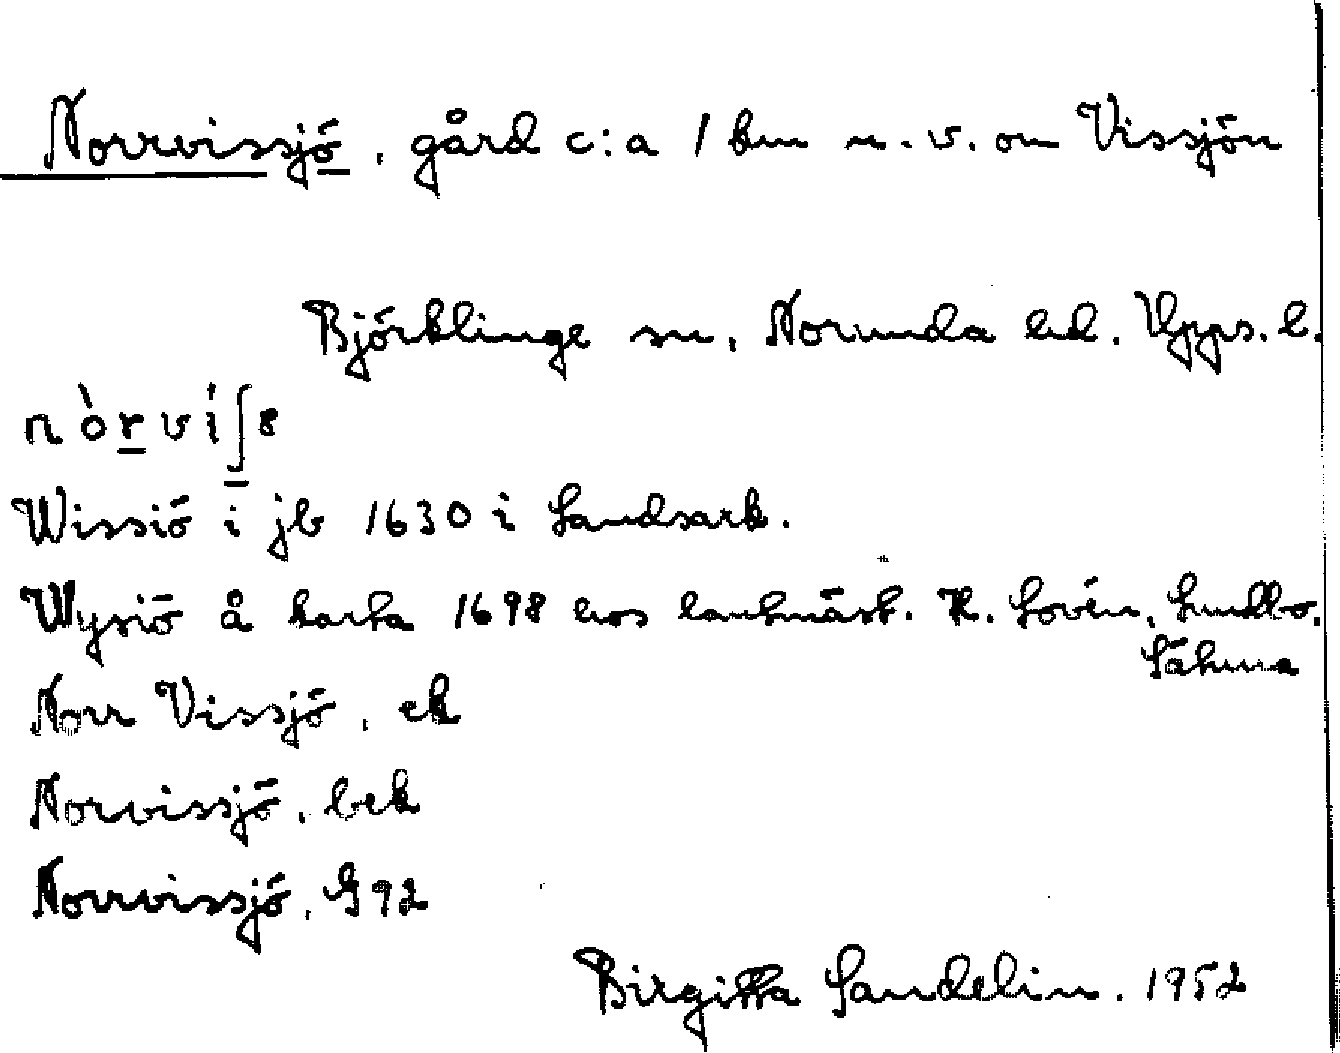 Norrvissjö, gård c:a 1 km n.v. om Vissjön
Björklinge sn, Norunda hd. Upps. l.
nòrvi∫8
Wissiö i jb 1630 i Landsark.
Wysiö å karta 1698 hos lantmäst. K. Lovén, Lundbo,
Norr Vissjö, ek
Norvissjö, bek
Norrvissjö, G92
Birgitta Sandelin. 1952